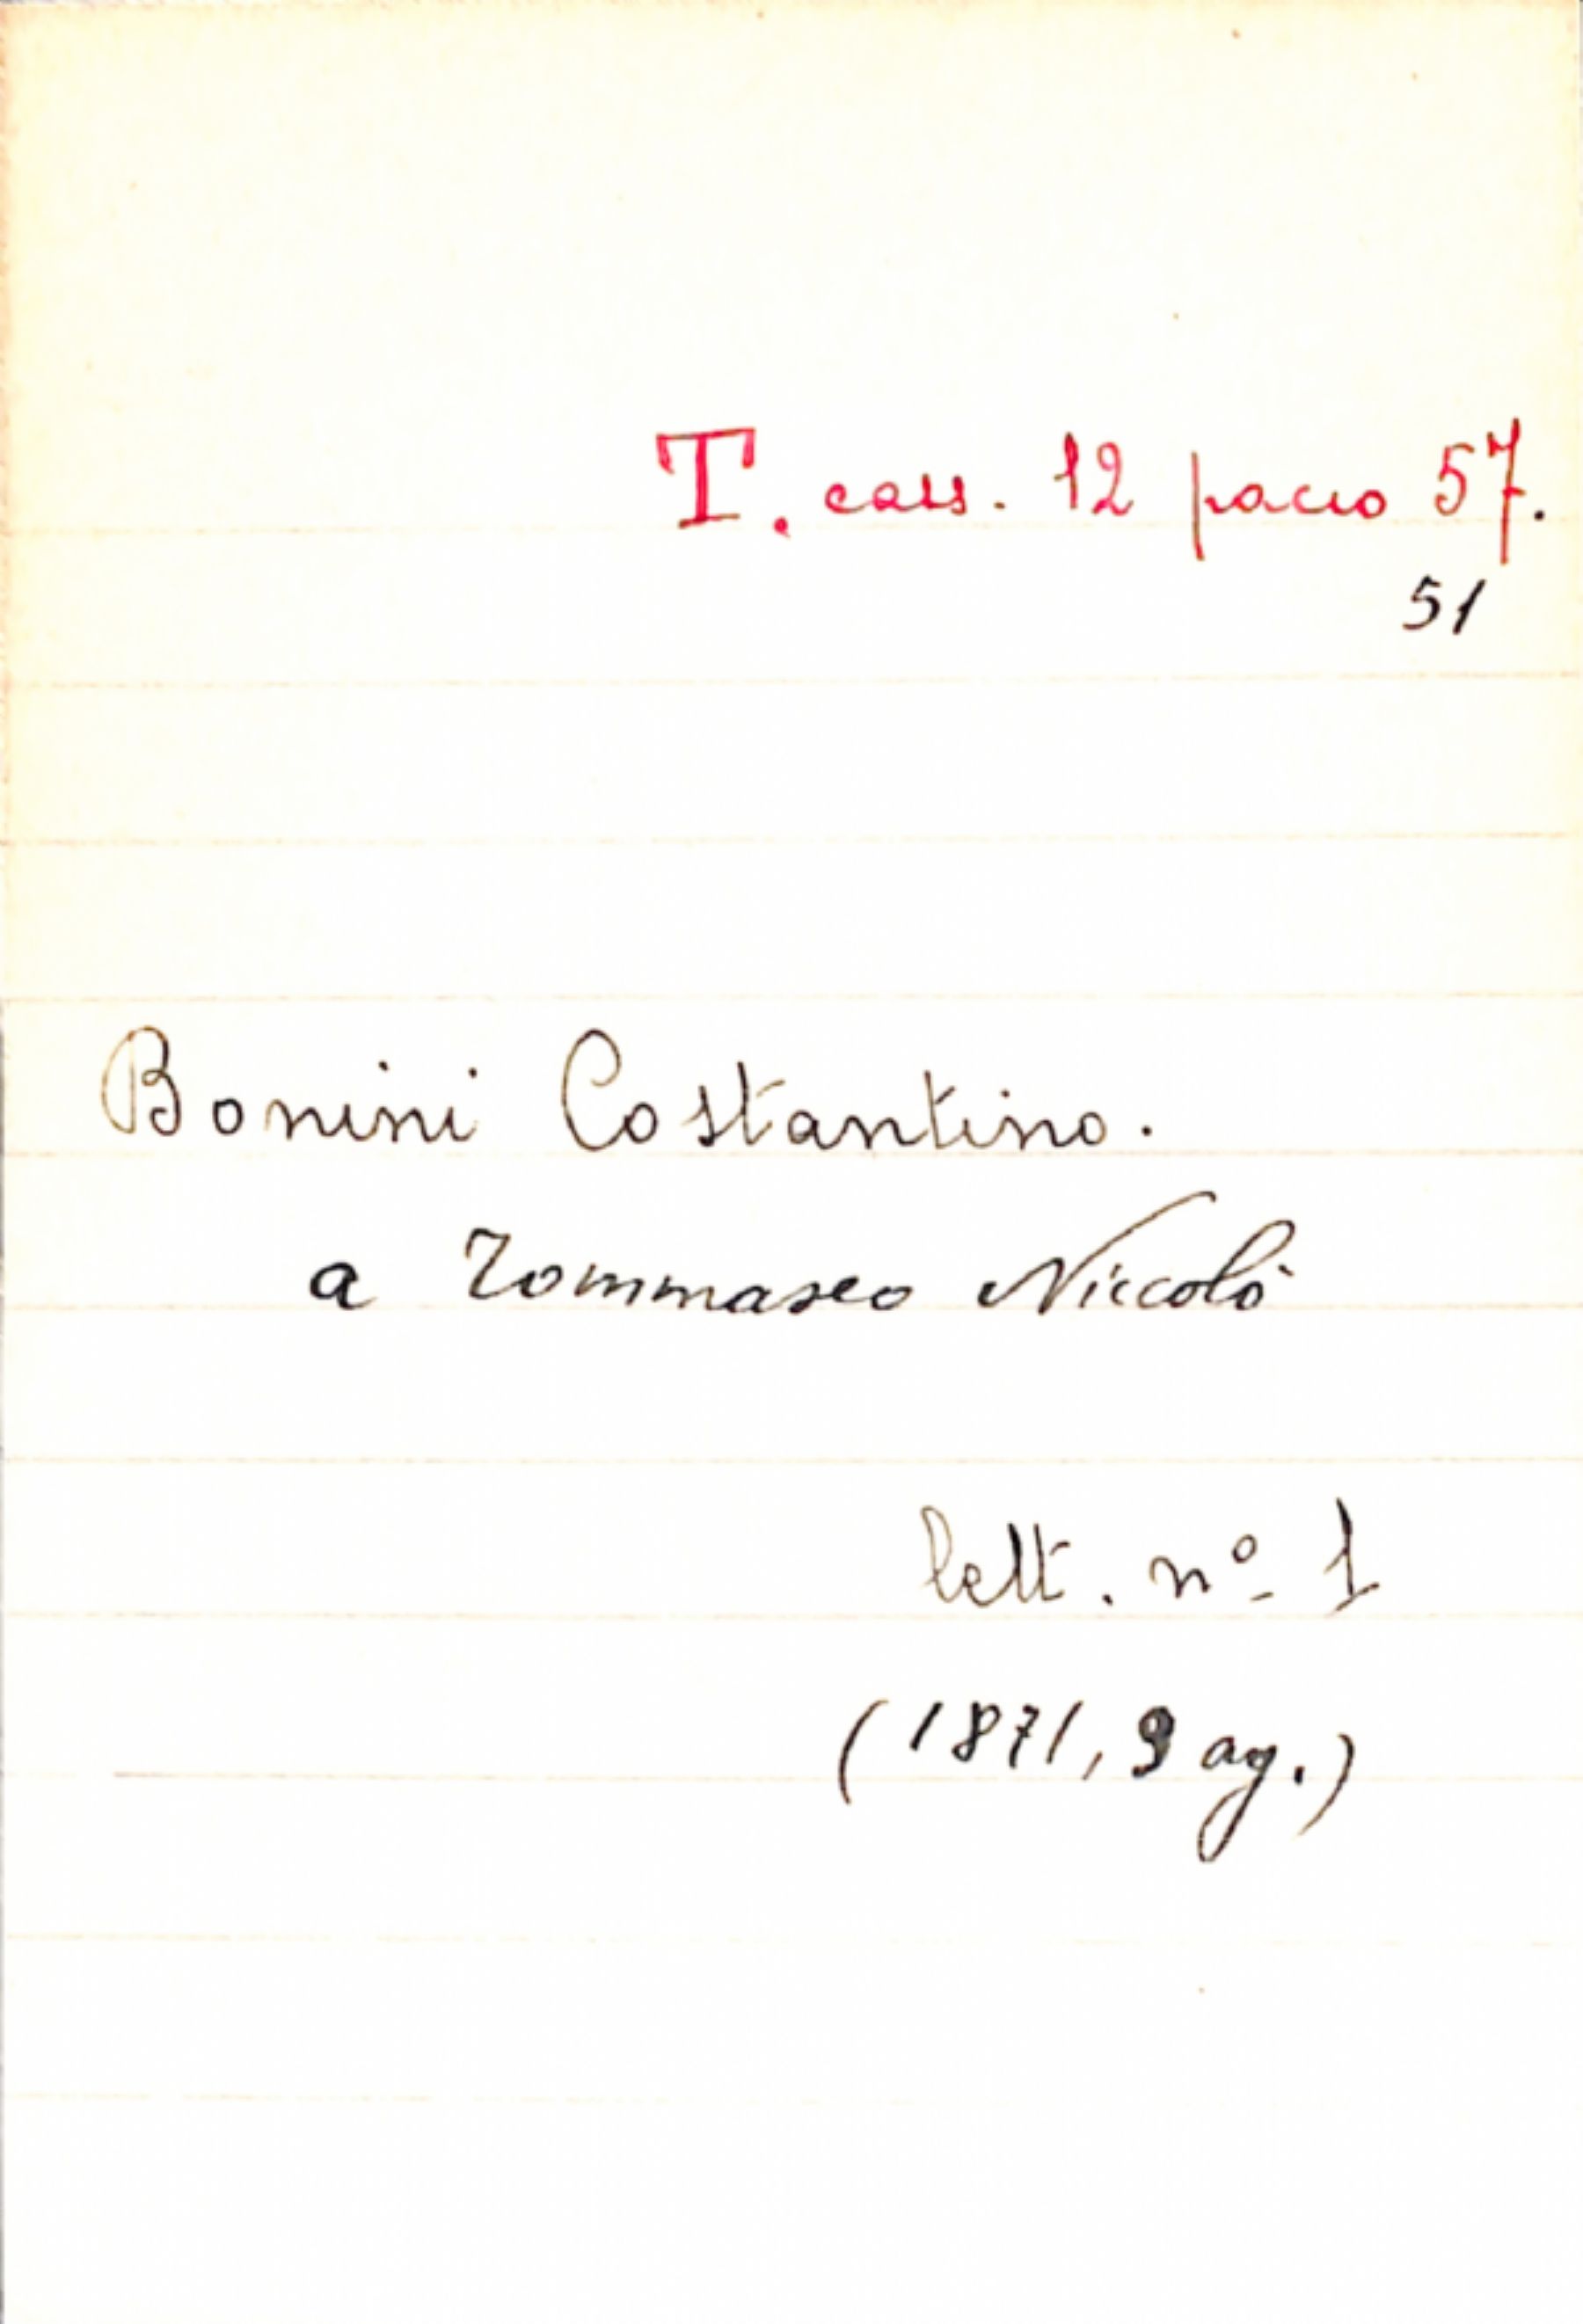 T. cass. 12 pacco 57.
51
Bonini Costantino.
a Tommaseo Niccolò
lett. nº 1
(1871, 9 ag.)